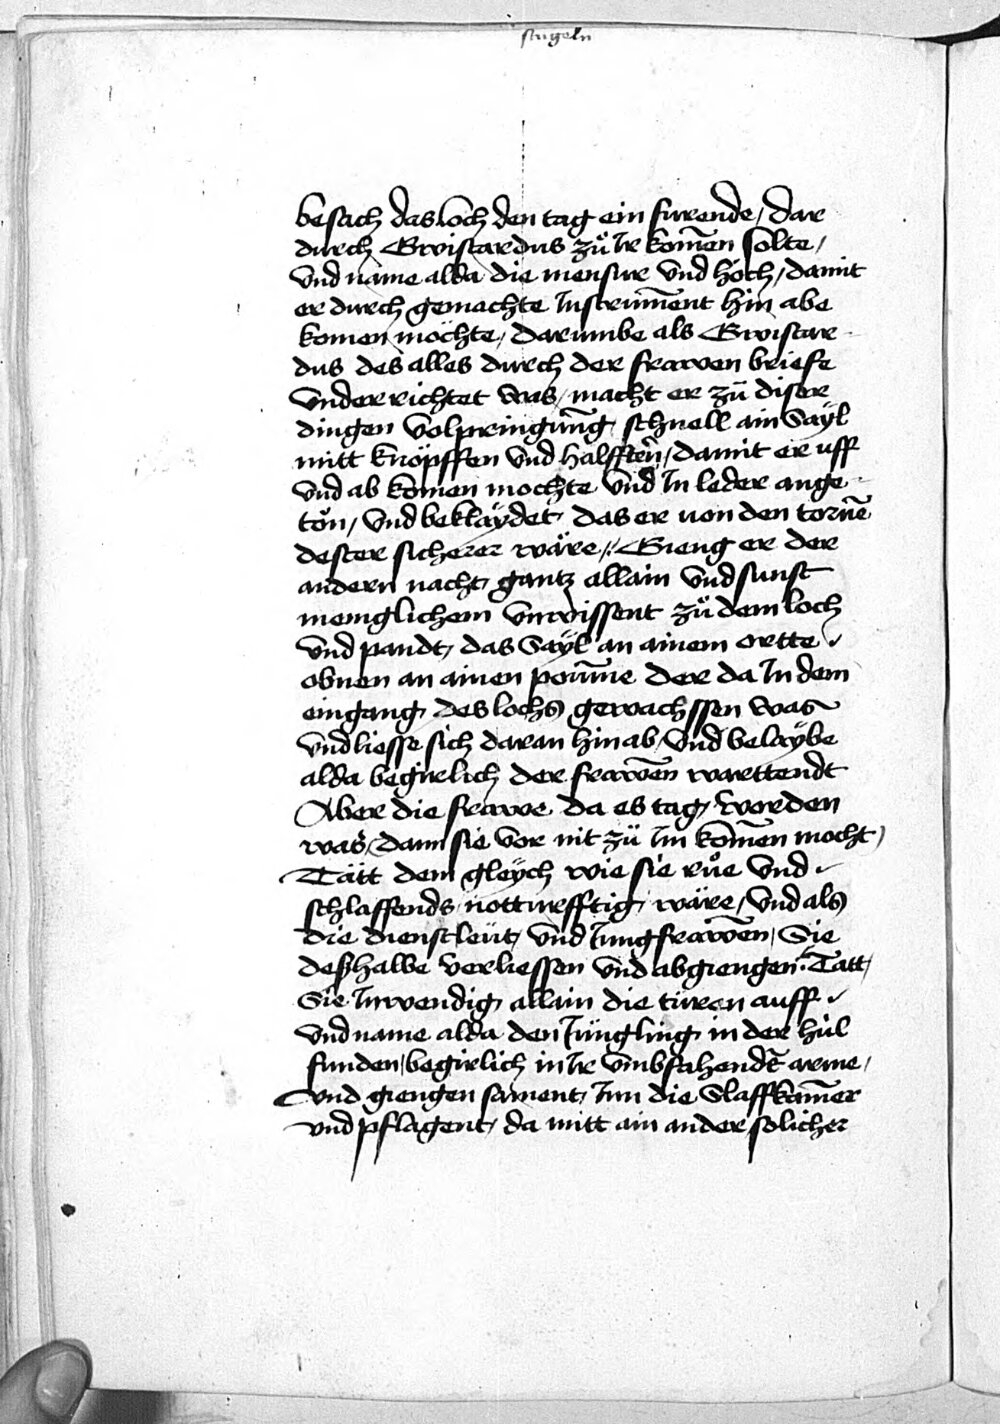 stugeln
besach das loch den tag ein furende / dar
durch Gwistardus zů Ir komen solte /
Vnd name alda die mensur vnd höch / damit
er durch gemachte Instrument hin abe
komen möchte / darumbe als Gwistar
dus des alles durch der frawen briefe
Vnderrichtet was / macht er zü diser
dingen volpringung schnell ain Sayl
mitt knöpffen vnd halfftern / damit er uff
vnd ab komen mochte vnd In leder ange
tön / vnd beklaydet das er von den torne
dester sicherer wäre / Gieng er der
andern nacht gantz allain vnd sunst
menglichem vnwissent zů dem loch
vnd pandt das Sayl an ainem ortte
obnen an ainen poume der da In dem
eingang des lochs gewachssen was
vnd liesse sich daran hinab / vnd belaybe
alda begirlich der frawen warttendt
Aber die frawe da es tag worden
was / dann sie vor nit zü Im komen mocht /
Tätt dem gleych wie sie růe vnd
schlaffends notturfftig wäre / vnd als
die dienstleüt vnd Jungfrawen / Sie
deßhalbe verliessen vnd abgiengen Tätt
Sie Inwendig allain die türen auff
vnd name alda den Jüngling in der hül
funden / begirlich in Ir vmbfahendt arme /
Vnd giengen sament Inn die Slaffkamer
vnd pflagent da mitt ain ander solicher